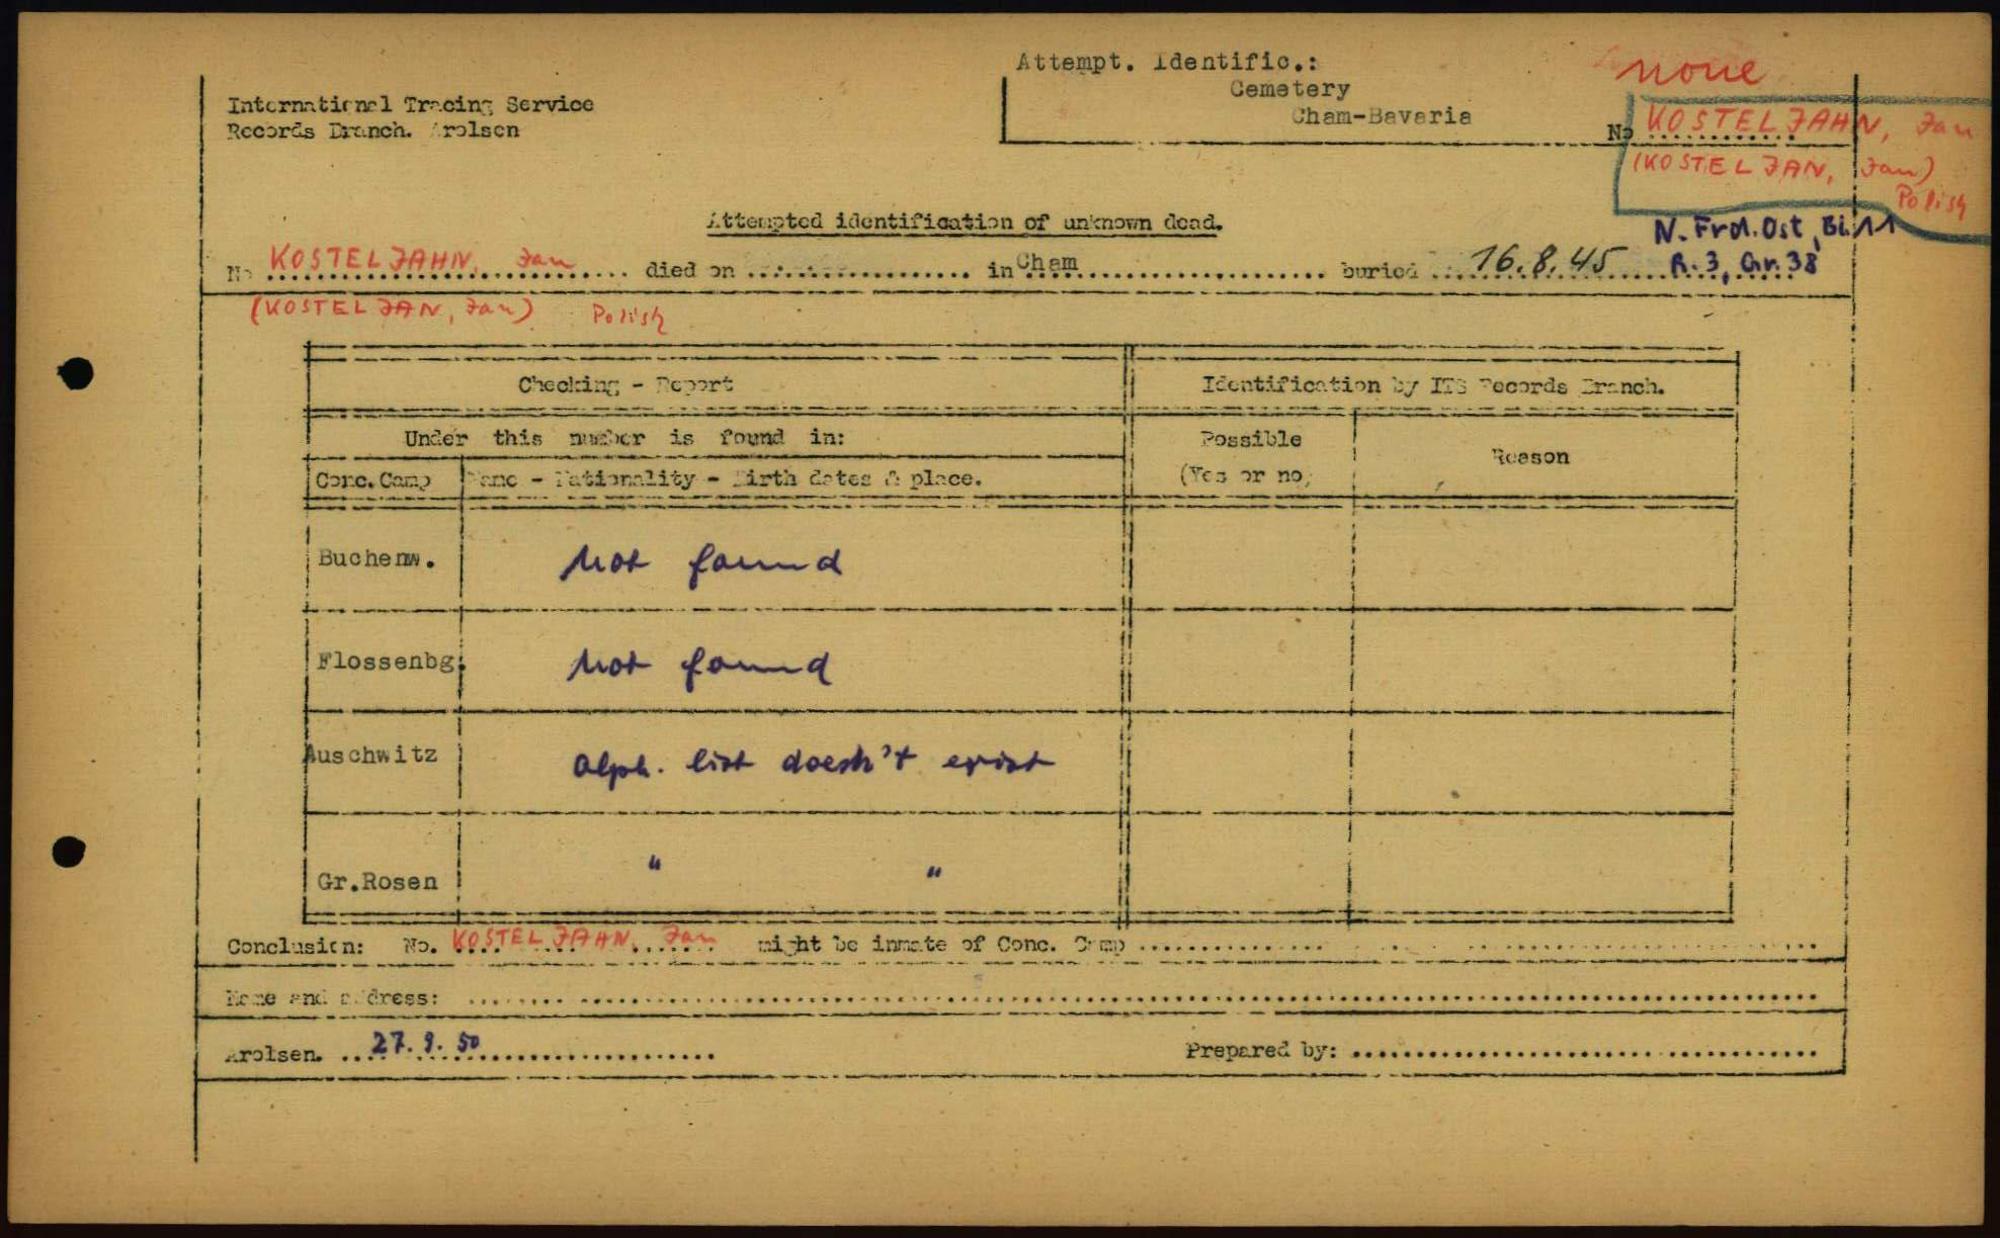 Attempt. Identific.:
none
International Tracing Service
Cemetery
Records Branch. Arolsen
Cham-Bavaria
No KOSTELJAHN, Jan
(KOSTELJAN, Jan)
Polish
Attempted identification of unknown dead.
N. Frd. Ost, Bi. 11
R. 3, Gr. 38
No KOSTELJAHN, Jan died on .................. in Cham buried 16.8.45
(KOSTELJAN, Jan) Polish
Checking - Report Identification by ITS Records Branch.
Under this number is found in: Possible Reason
Conc.Camp Name - Nationality - Birth dates & place. (Yes or no)
Buchenw. not found
Flossenbg. not found
Auschwitz alph. list doesn't exist
Gr.Rosen " "
Conclusion: No. KOSTELJAHN, Jan might be inmate of Conc. Camp ..............
Name and address: ..............
Arolsen. 27. 9. 50 Prepared by: ..............